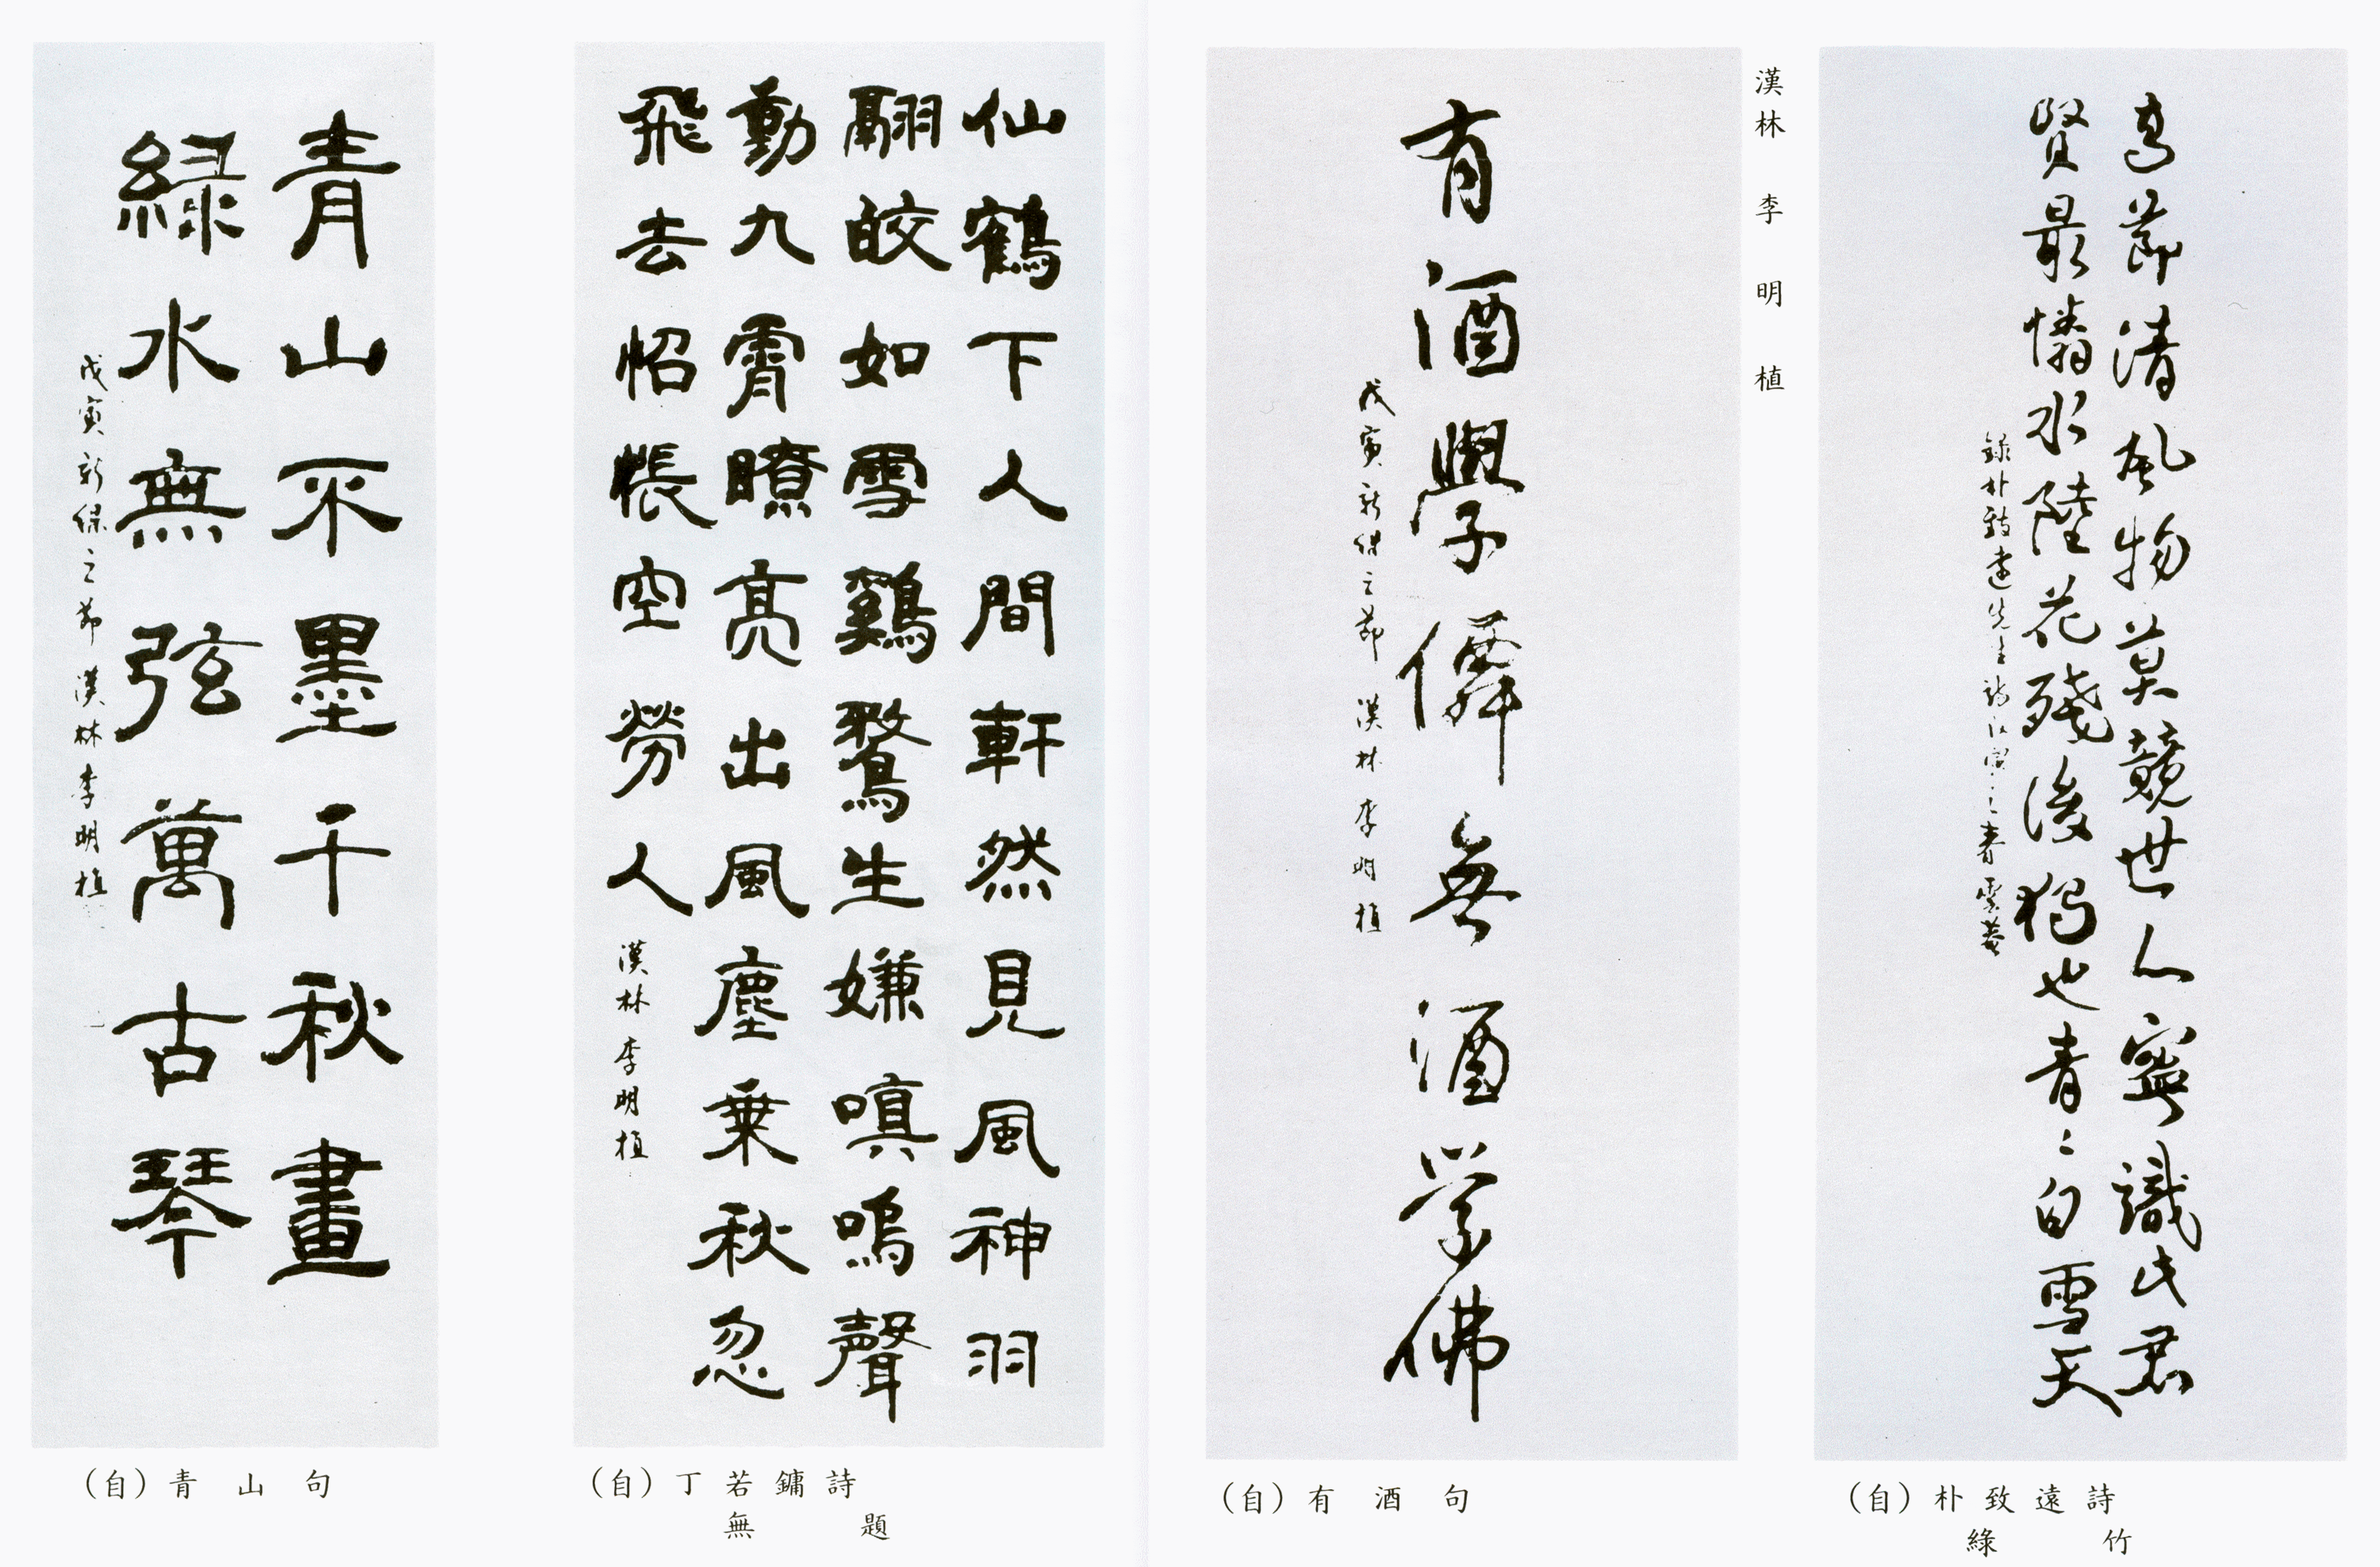 高節清風物莫競世人寧識此君
賢最憐水陸花殘後獨也青々白雪天
錄朴致遠先生詩戊寅之春雲菴
(自)朴致遠詩
綠竹
漢林 李明植
有酒學僊無酒学佛
戊寅新緑之節 漢林 李明植
(自)有酒句
仙鶴下人間軒然見風神羽
翮皎如雪鷄鶩生嫌嗔鳴聲
動九霄瞭亮出風塵乗秋忽
飛去怊悵空勞人
漢林李明植
(自)丁若鏞詩
無題
青山不墨千秋畫
緑水無弦萬古琴
戊寅新緑之節 漢林李明植
(自)青山句